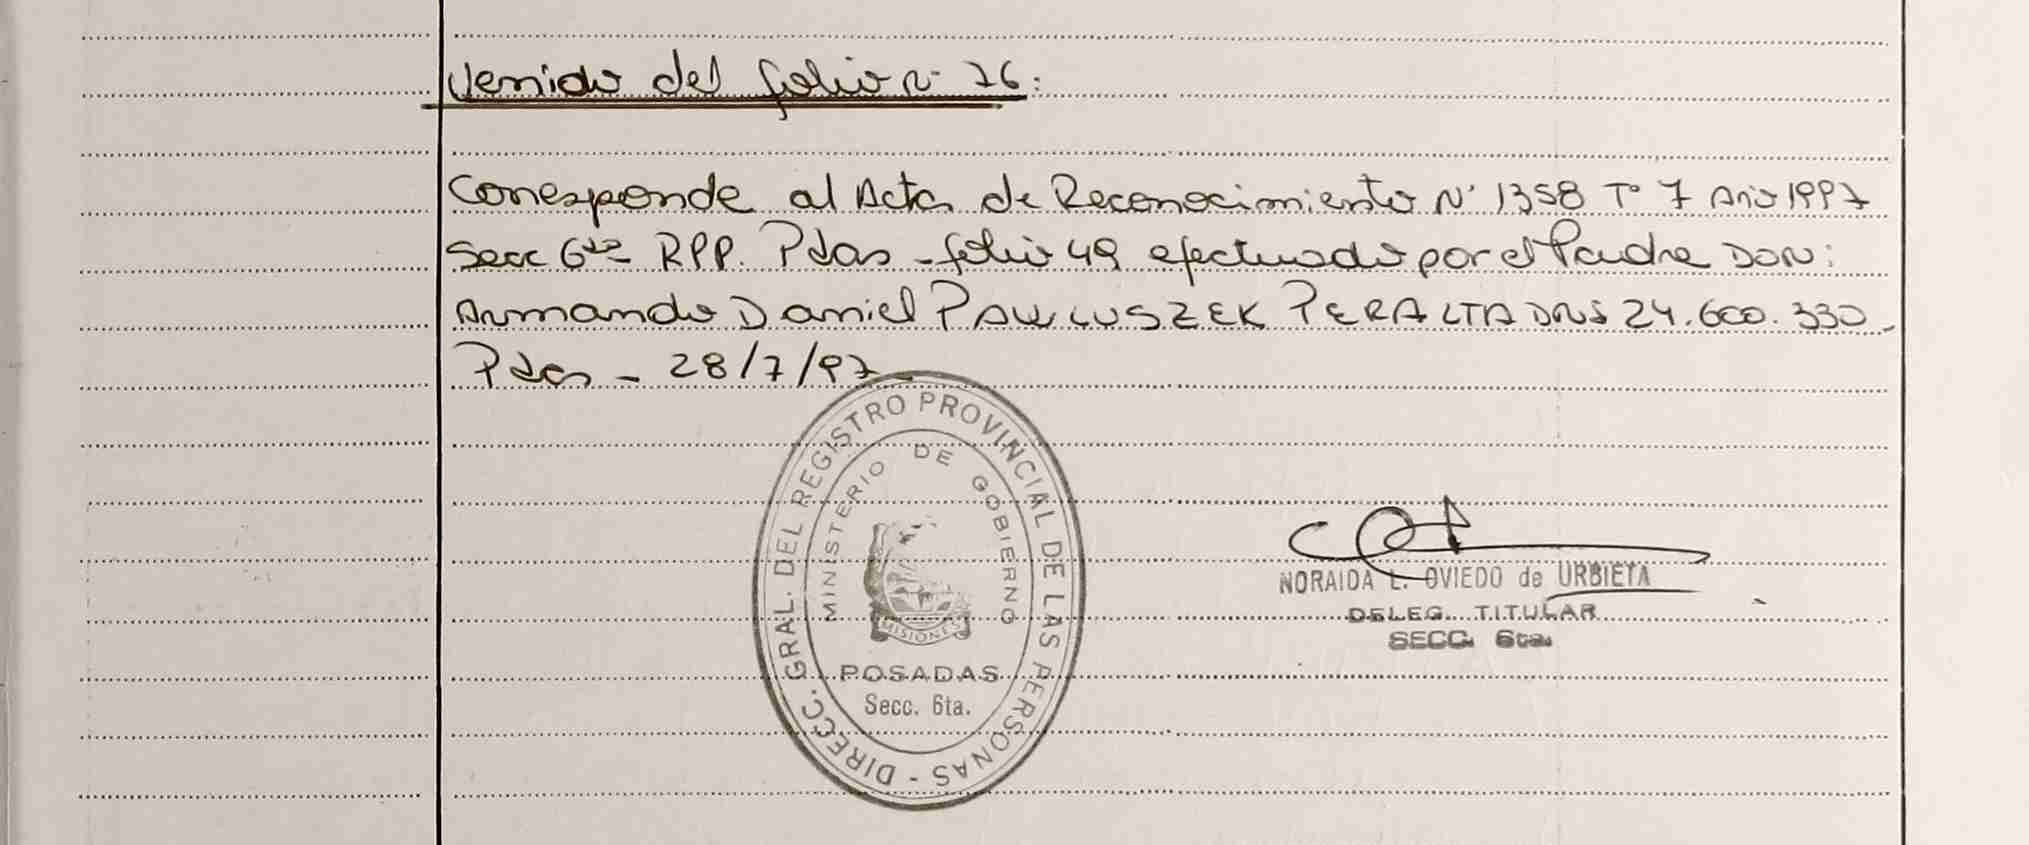 Venido del folio Nº 76:
Corresponde al Acta de Reconocimiento Nº 1358 Tº 7 Año 1997
Secc 6ta RPP. Pdas - folio 49 efectuado por el Padre DON:
Armando Daniel PAWLUSZEK PERALTA DNI 24.600.330-
Pdas - 28/7/97
DIRECC. GRAL. DEL REGISTRO PROVINCIAL DE LAS PERSONAS -
MINISTERIO DE GOBIERNO
MISIONES
POSADAS
Secc. 6ta.
NORAIDA L. OVIEDO de URBIETA
DELEG. TITULAR
SECC. 6ta.